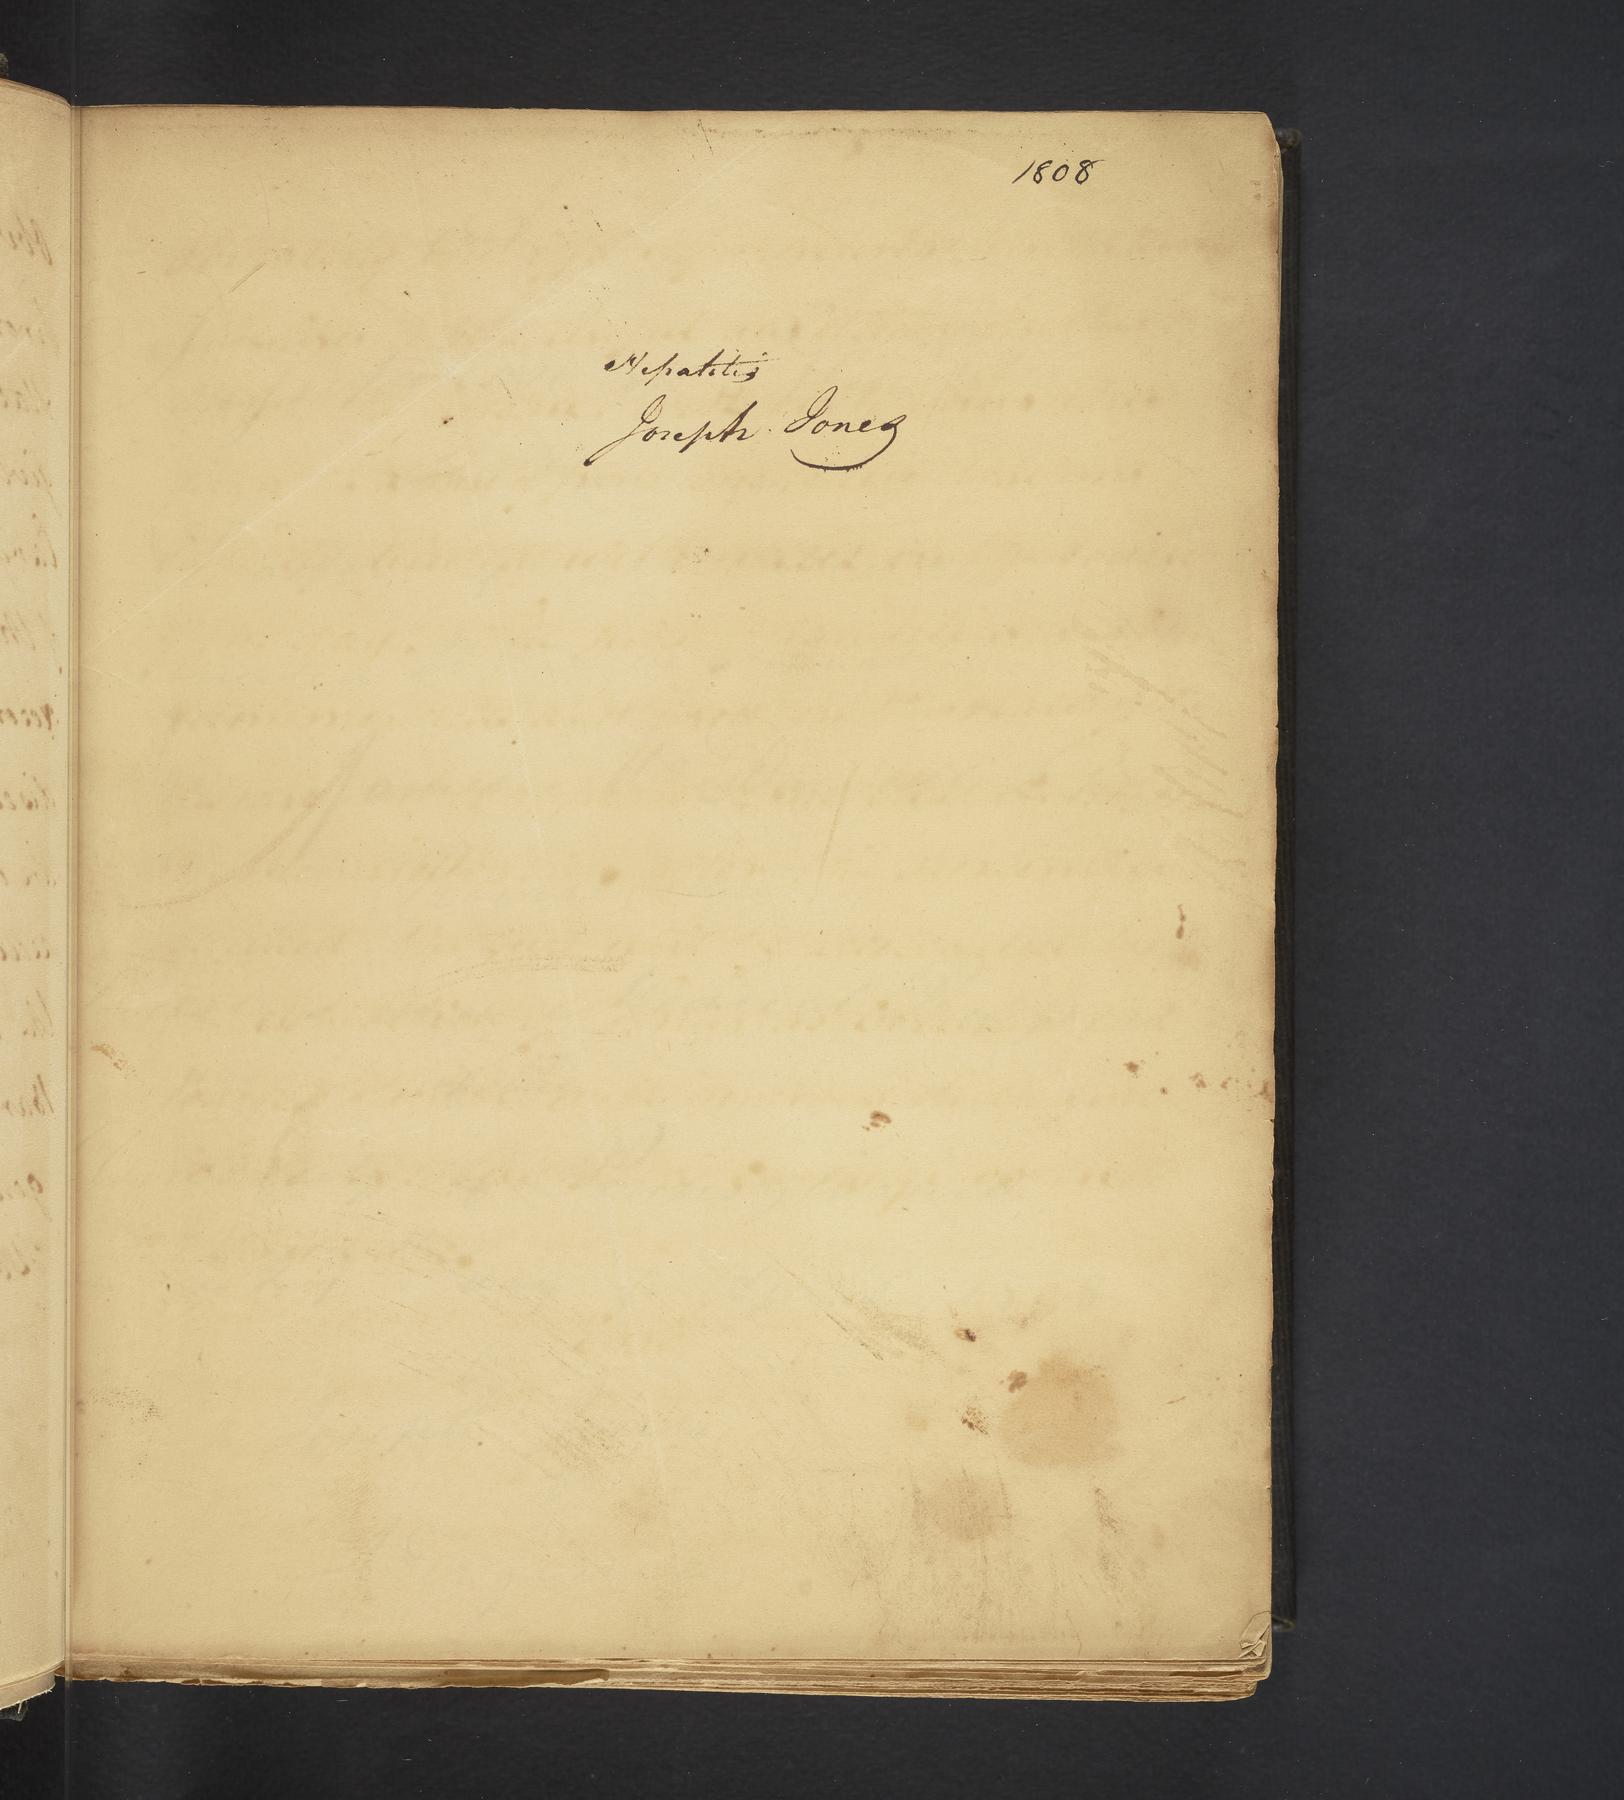 1808
Hepatitis
Joseph Jones